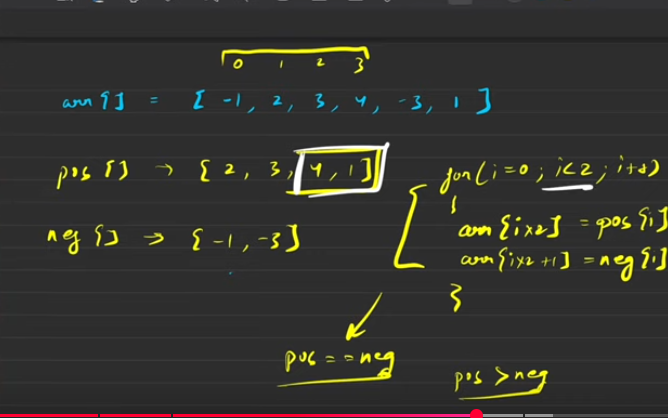 0 1 2 3
arr[] = [ -1, 2, 3, 4, -3, 1 ]
pos[] → [ 2, 3, 4, 1 ]
neg[] → [ -1, -3 ]
for(i=0; i<2; i++)
{
arr[i×2] = pos[i]
arr[i×2+1] = neg[i]
}
pos == neg
pos > neg